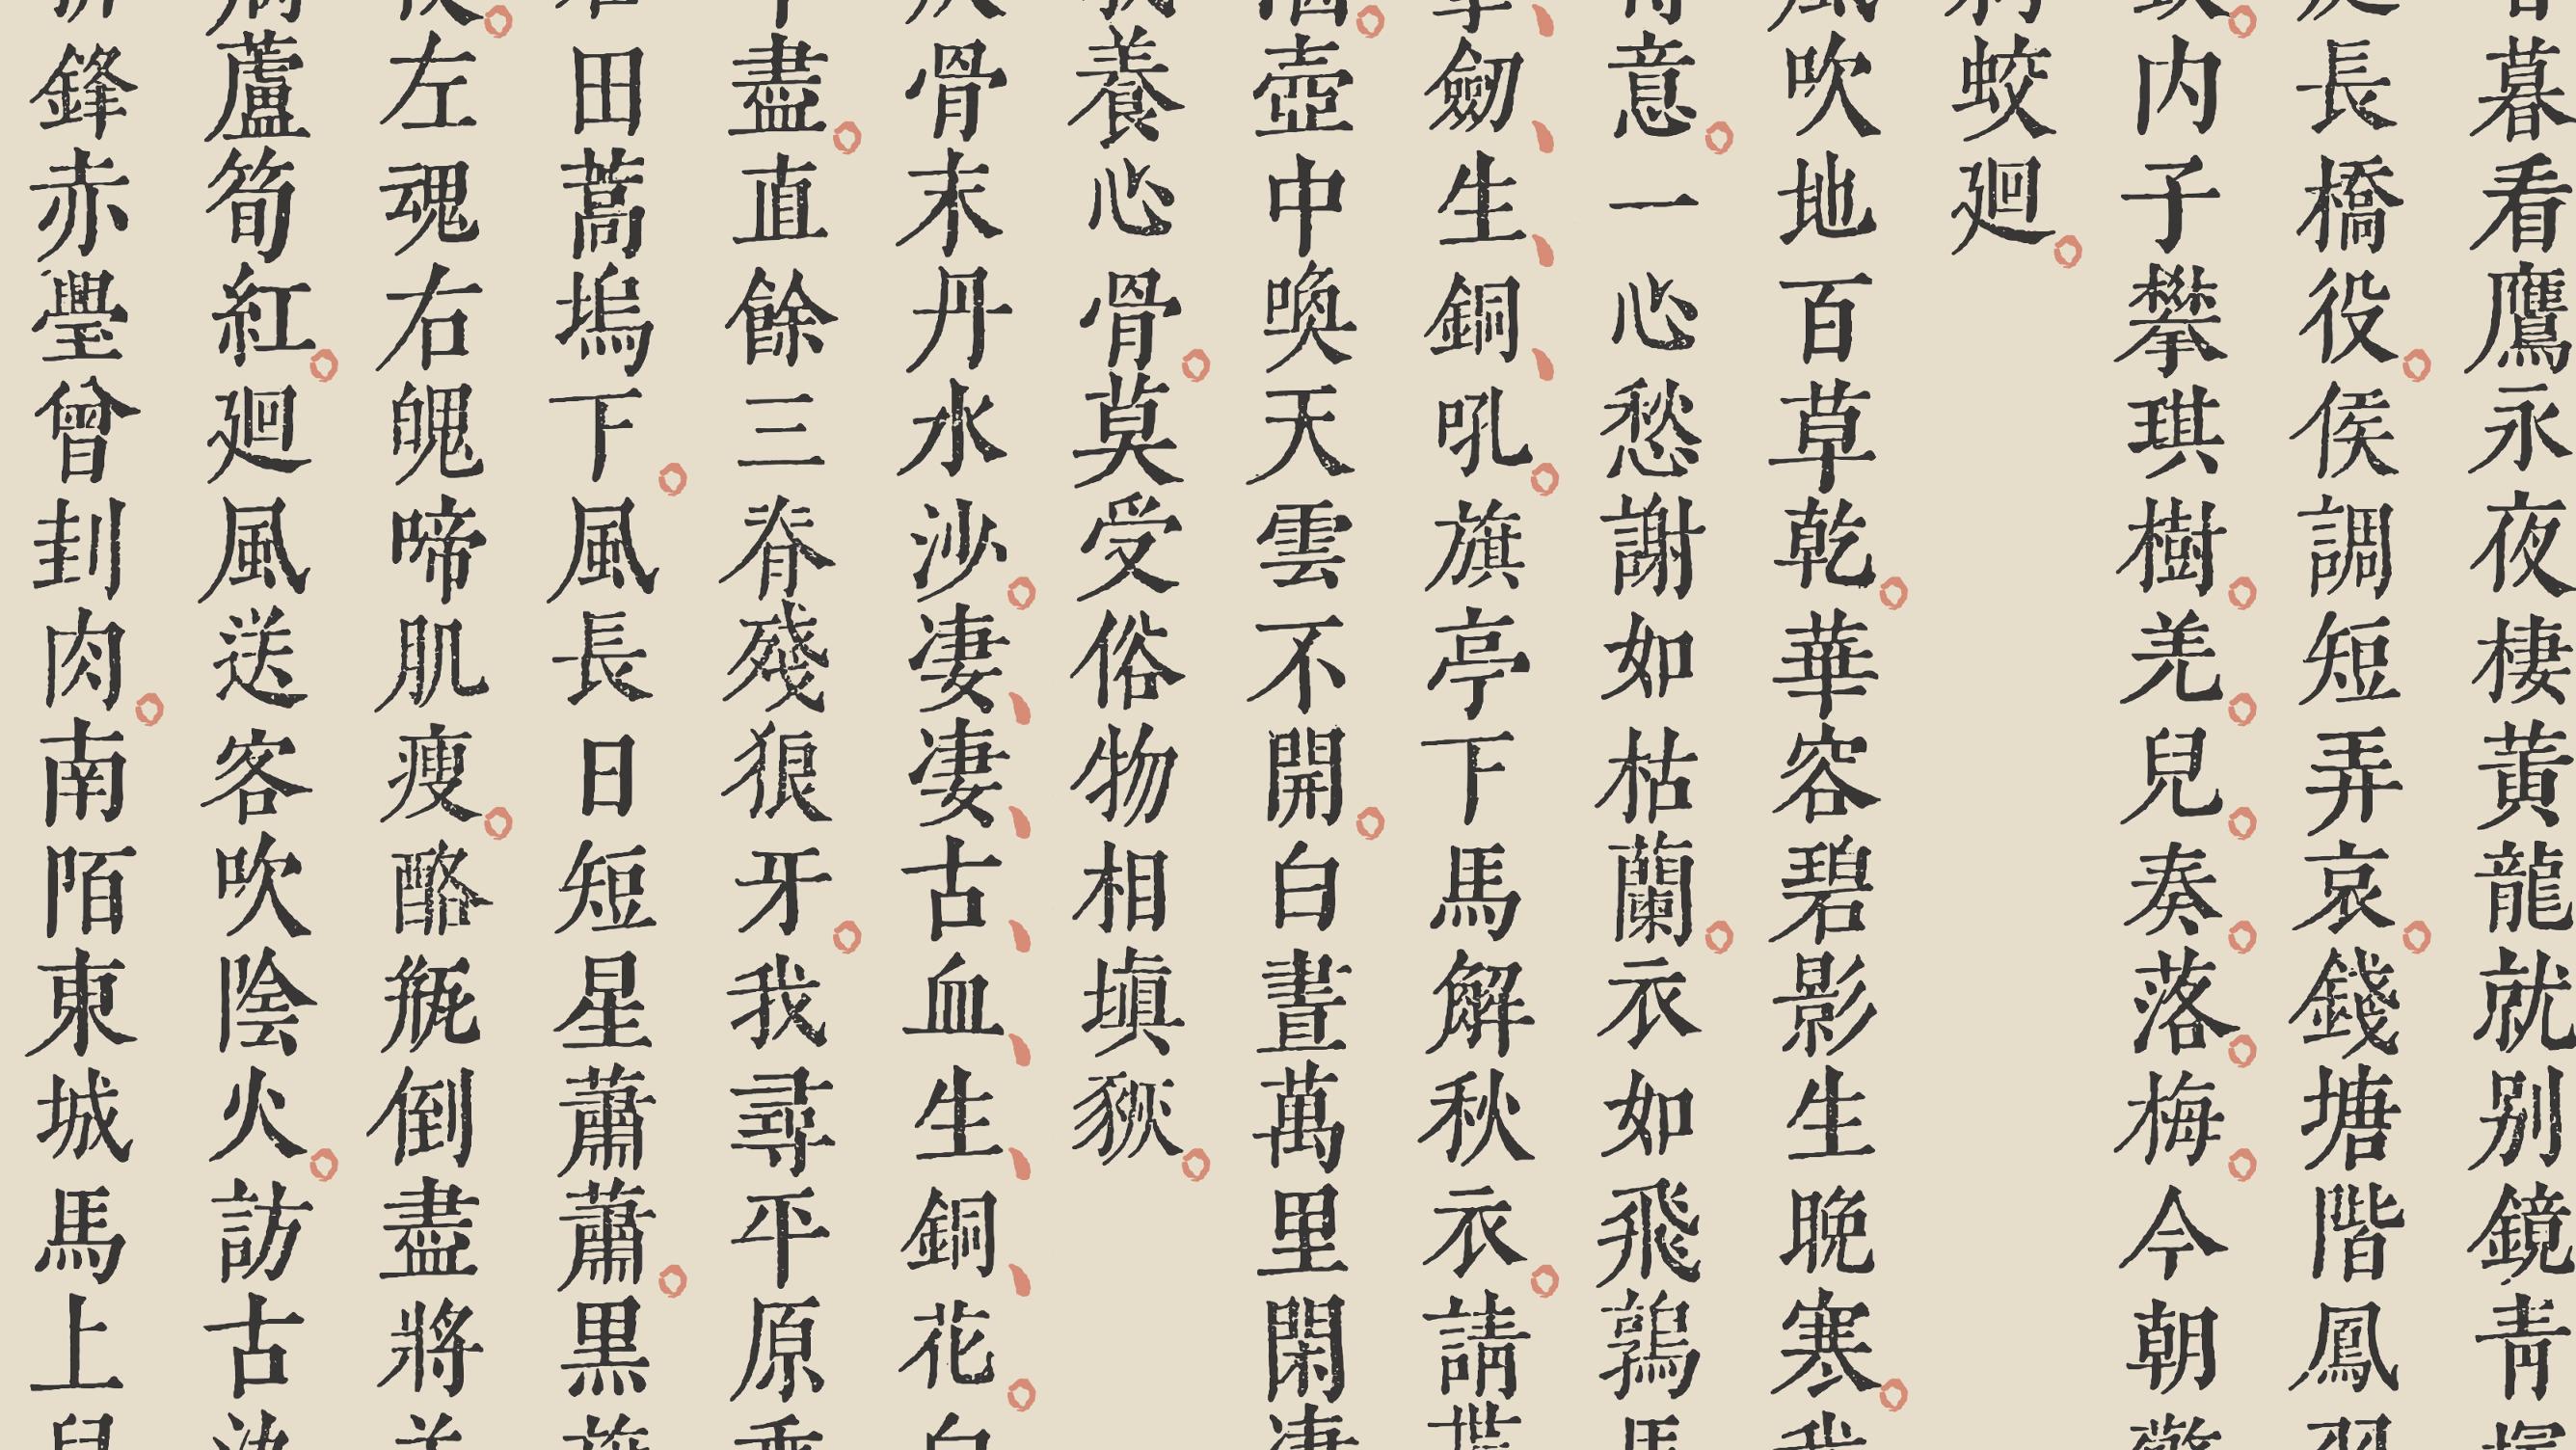 暮看鷹永夜棲黃龍就别鏡青
長橋役。侯調短弄哀。錢塘階鳳
内子攀琪樹。羌。兒。奏。落。梅。今朝
蛟廻。
吹地百草乾。華容碧影生晚寒。
意。一心愁謝如枯蘭。衣如飛鶉
劒、生、銅、吼。旗亭下馬解秋衣。請
壺中喚天雲不開。白晝萬里閑
養心骨。莫受俗物相塡豗。
骨末丹水沙。凄、凄、古、血、生、銅、花。
盡。直餘三脊殘狼牙。我尋平原
田蒿塢下。風長日短星蕭蕭。黒
左魂右魄啼肌瘦。酪瓶倒盡將
蘆筍紅。廻風送客吹陰火。訪古
鋒赤璺曾刲肉。南陌東城馬上